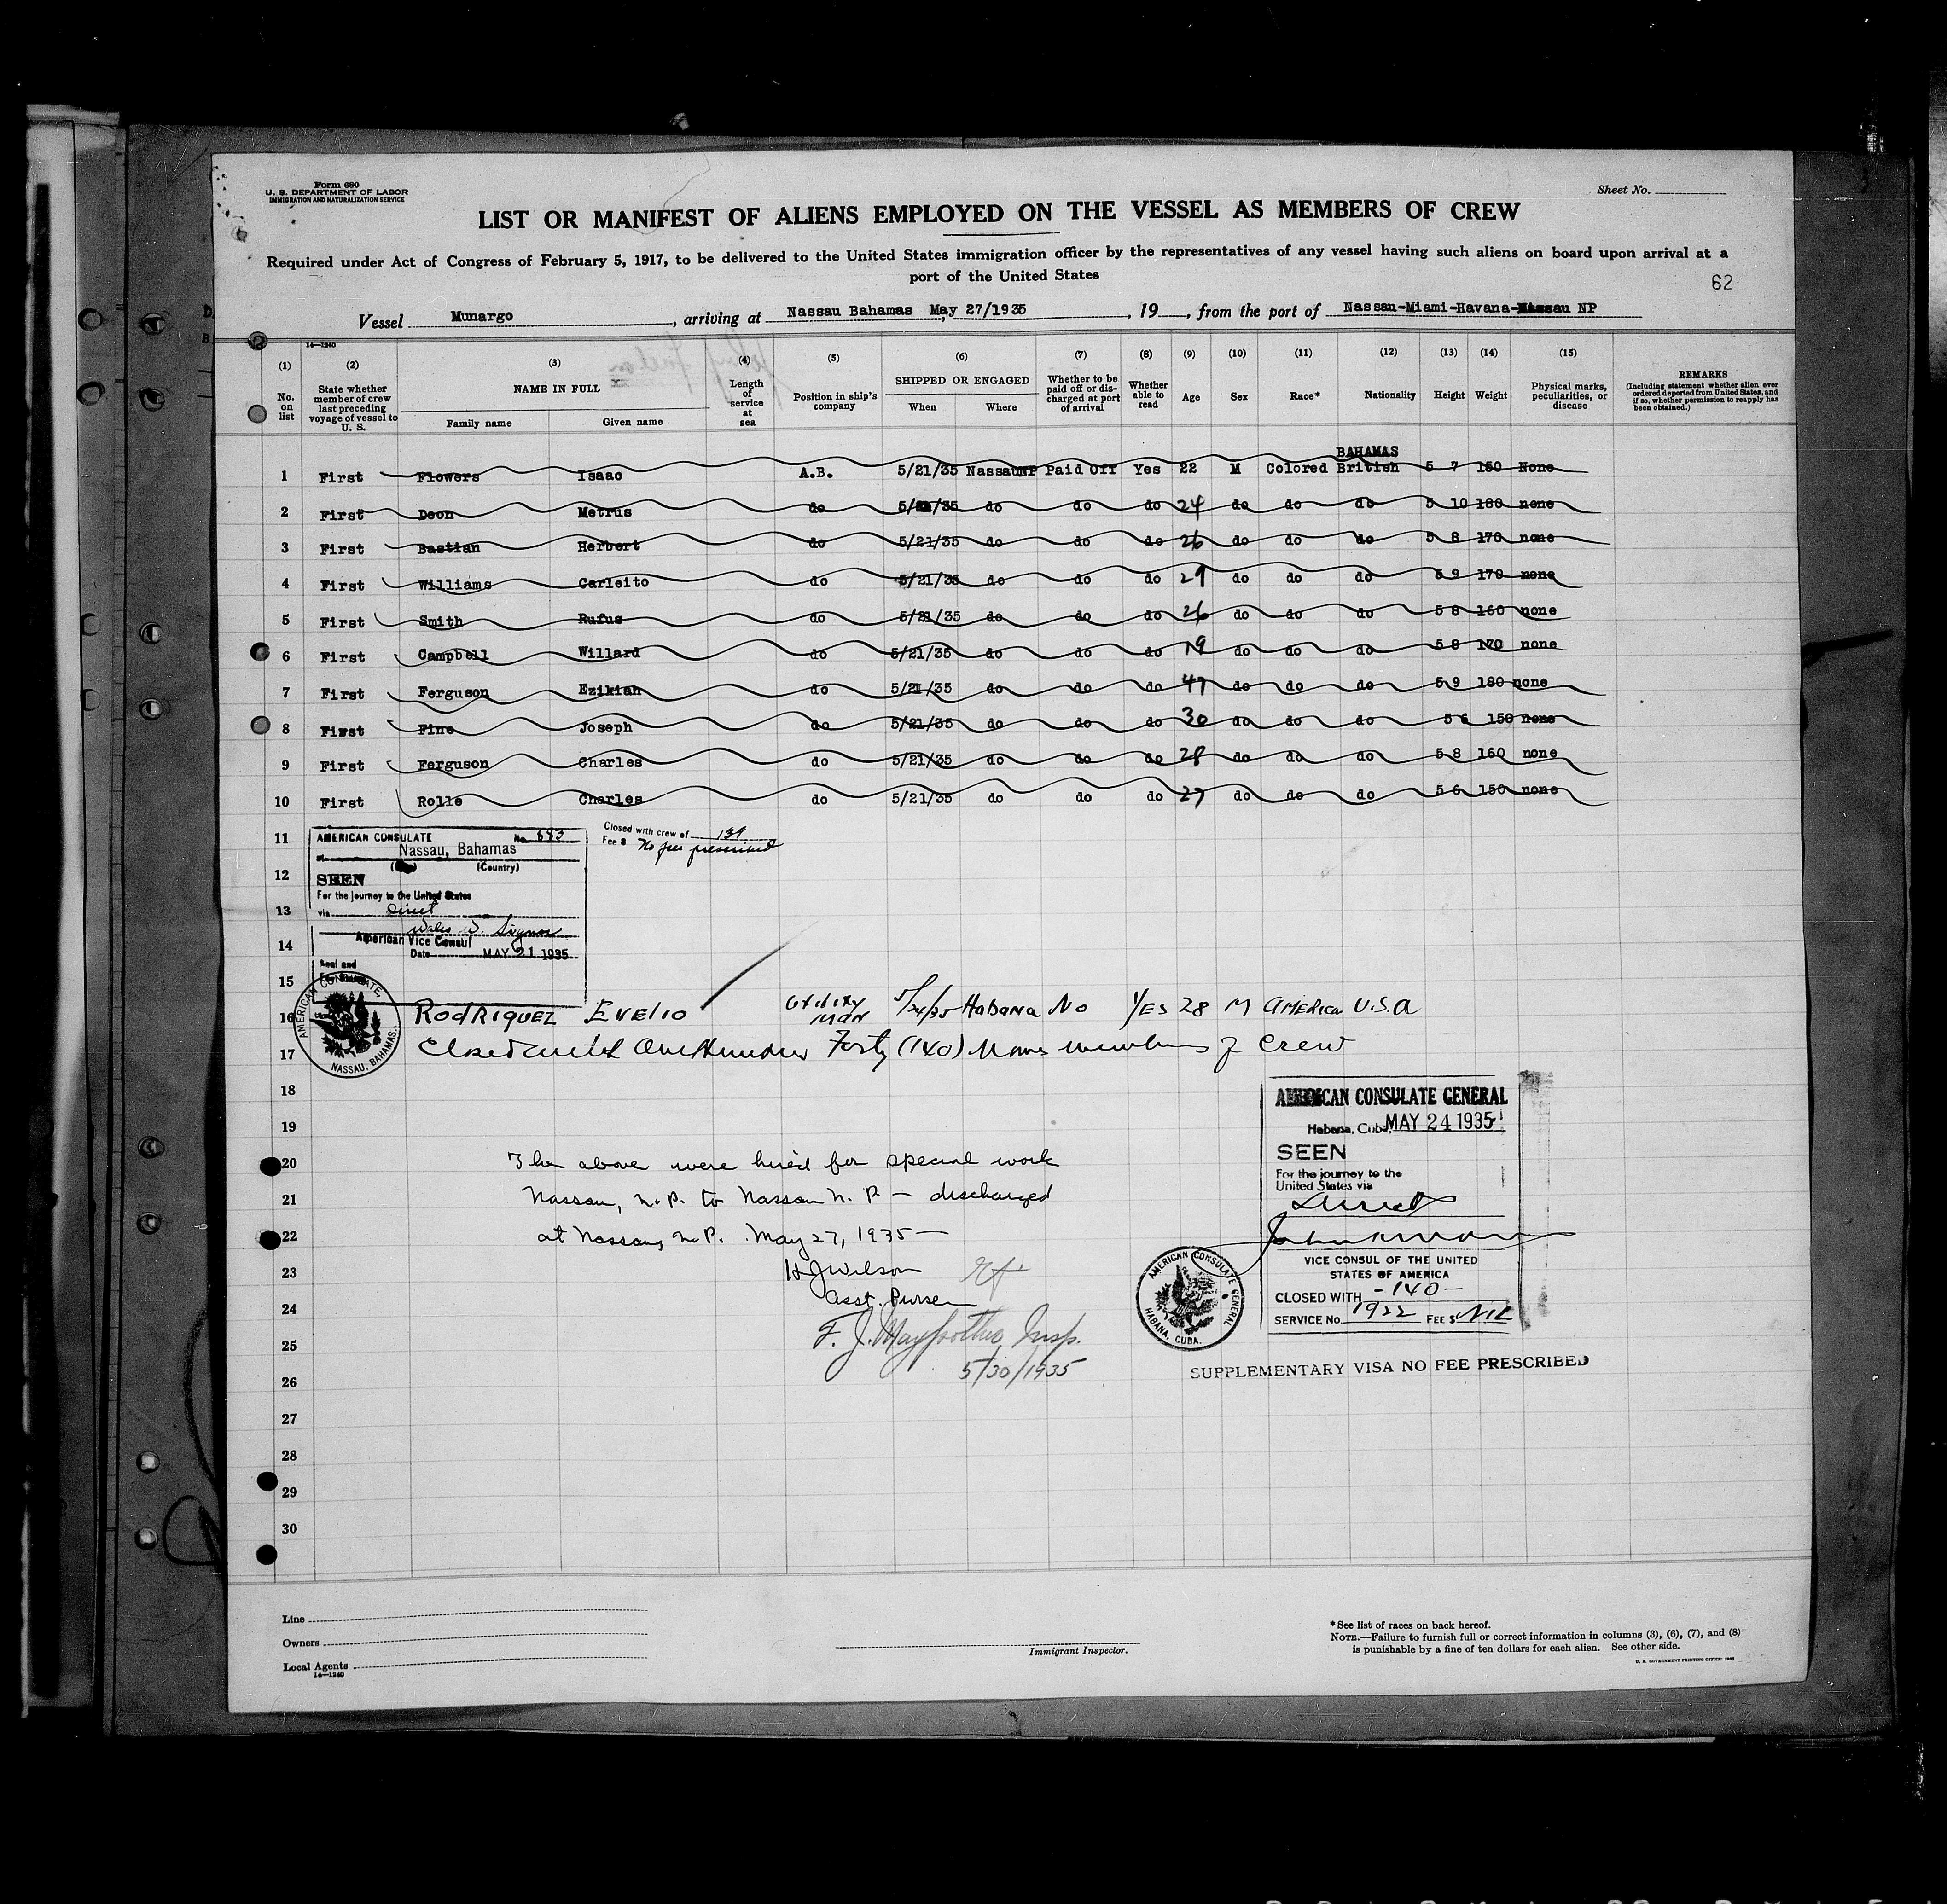 Form 680
U. S. DEPARTMENT OF LABOR
IMMIGRATION AND NATURALIZATION SERVICE
Sheet No.
LIST OR MANIFEST OF ALIENS EMPLOYED ON THE VESSEL AS MEMBERS OF CREW
Required under Act of Congress of February 5, 1917, to be delivered to the United States immigration officer by the representatives of any vessel having such aliens on board upon arrival at a
port of the United States
62
Vessel Munargo, arriving at Nassau Bahamas May 27/1935, 19 , from the port of Nassau-Miami-Havana-Nassau NP
14—1240
(1) (2) (3) (4) (5) (6) (7) (8) (9) (10) (11) (12) (13) (14) (15)
No. on list
State whether member of crew last preceding voyage of vessel to U. S.
NAME IN FULL
Family name Given name
Length of service at sea
Position in ship's company
SHIPPED OR ENGAGED
When Where
Whether to be paid off or discharged at port of arrival
Whether able to read
Age
Sex
Race*
Nationality
Height
Weight
Physical marks, peculiarities, or disease
REMARKS
(Including statement whether alien ever ordered deported from United States, and if so, whether permission to reapply has been obtained.)
BAHAMAS
1 First Flowers Isaac A.B. 5/21/35 NassauNP Paid Off Yes 22 M Colored British 5 7 150 None
2 First Deon Metrus do 5/21/35 do do do 24 do do do 5 10 180 none
3 First Bastian Herbert do 5/21/35 do do do 26 do do do 5 8 170 none
4 First Williams Carleito do 5/21/35 do do do 29 do do do 5 9 170 none
5 First Smith Rufus do 5/21/35 do do do 26 do do do 5 8 160 none
6 First Campbell Willard do 5/21/35 do do do 19 do do do 5 8 170 none
7 First Ferguson Ezikiah do 5/21/35 do do do 47 do do do 5 9 180 none
8 First Fine Joseph do 5/21/35 do do do 30 do do do 5 6 150 none
9 First Ferguson Charles do 5/21/35 do do do 28 do do do 5 8 160 none
10 First Rolle Charles do 5/21/35 do do do 27 do do do 5 6 150 none
11
12
13
14
15
AMERICAN CONSULATE No. 693
Nassau, Bahamas
(Country)
SEEN
For the journey to the United States
via direct
American Vice Consul
Date MAY 21 1935
Seal and
Closed with crew of 139
Fee $ No fee prescribed
AMERICAN CONSULATE, NASSAU, BAHAMAS.
16 RODRIQUEZ EVELIO Utility man 5/24/35 Habana No YES 28 M AMERICA U.S.A
17 Closed with One Hundred Forty (140) Names members of crew
18
19
20 The above were hired for special work
21 Nassau, N.P. to Nassau N.P. — discharged
22 at Nassau, N.P. May 27, 1935 —
23 H J Wilson
24 Asst. Purser
25 F. J. Insp.
26 5/30/1935
27
28
29
30
AMERICAN CONSULATE GENERAL
Habana, Cuba, MAY 24 1935
SEEN
For the journey to the
United States via
Direct
VICE CONSUL OF THE UNITED
STATES OF AMERICA
CLOSED WITH -140-
SERVICE No. 1922 FEE $ NIL
AMERICAN CONSULATE GENERAL HABANA, CUBA.
SUPPLEMENTARY VISA NO FEE PRESCRIBED
Line
Owners
Local Agents
14—1240
Immigrant Inspector.
*See list of races on back hereof.
NOTE.—Failure to furnish full or correct information in columns (3), (6), (7), and (8)
is punishable by a fine of ten dollars for each alien. See other side.